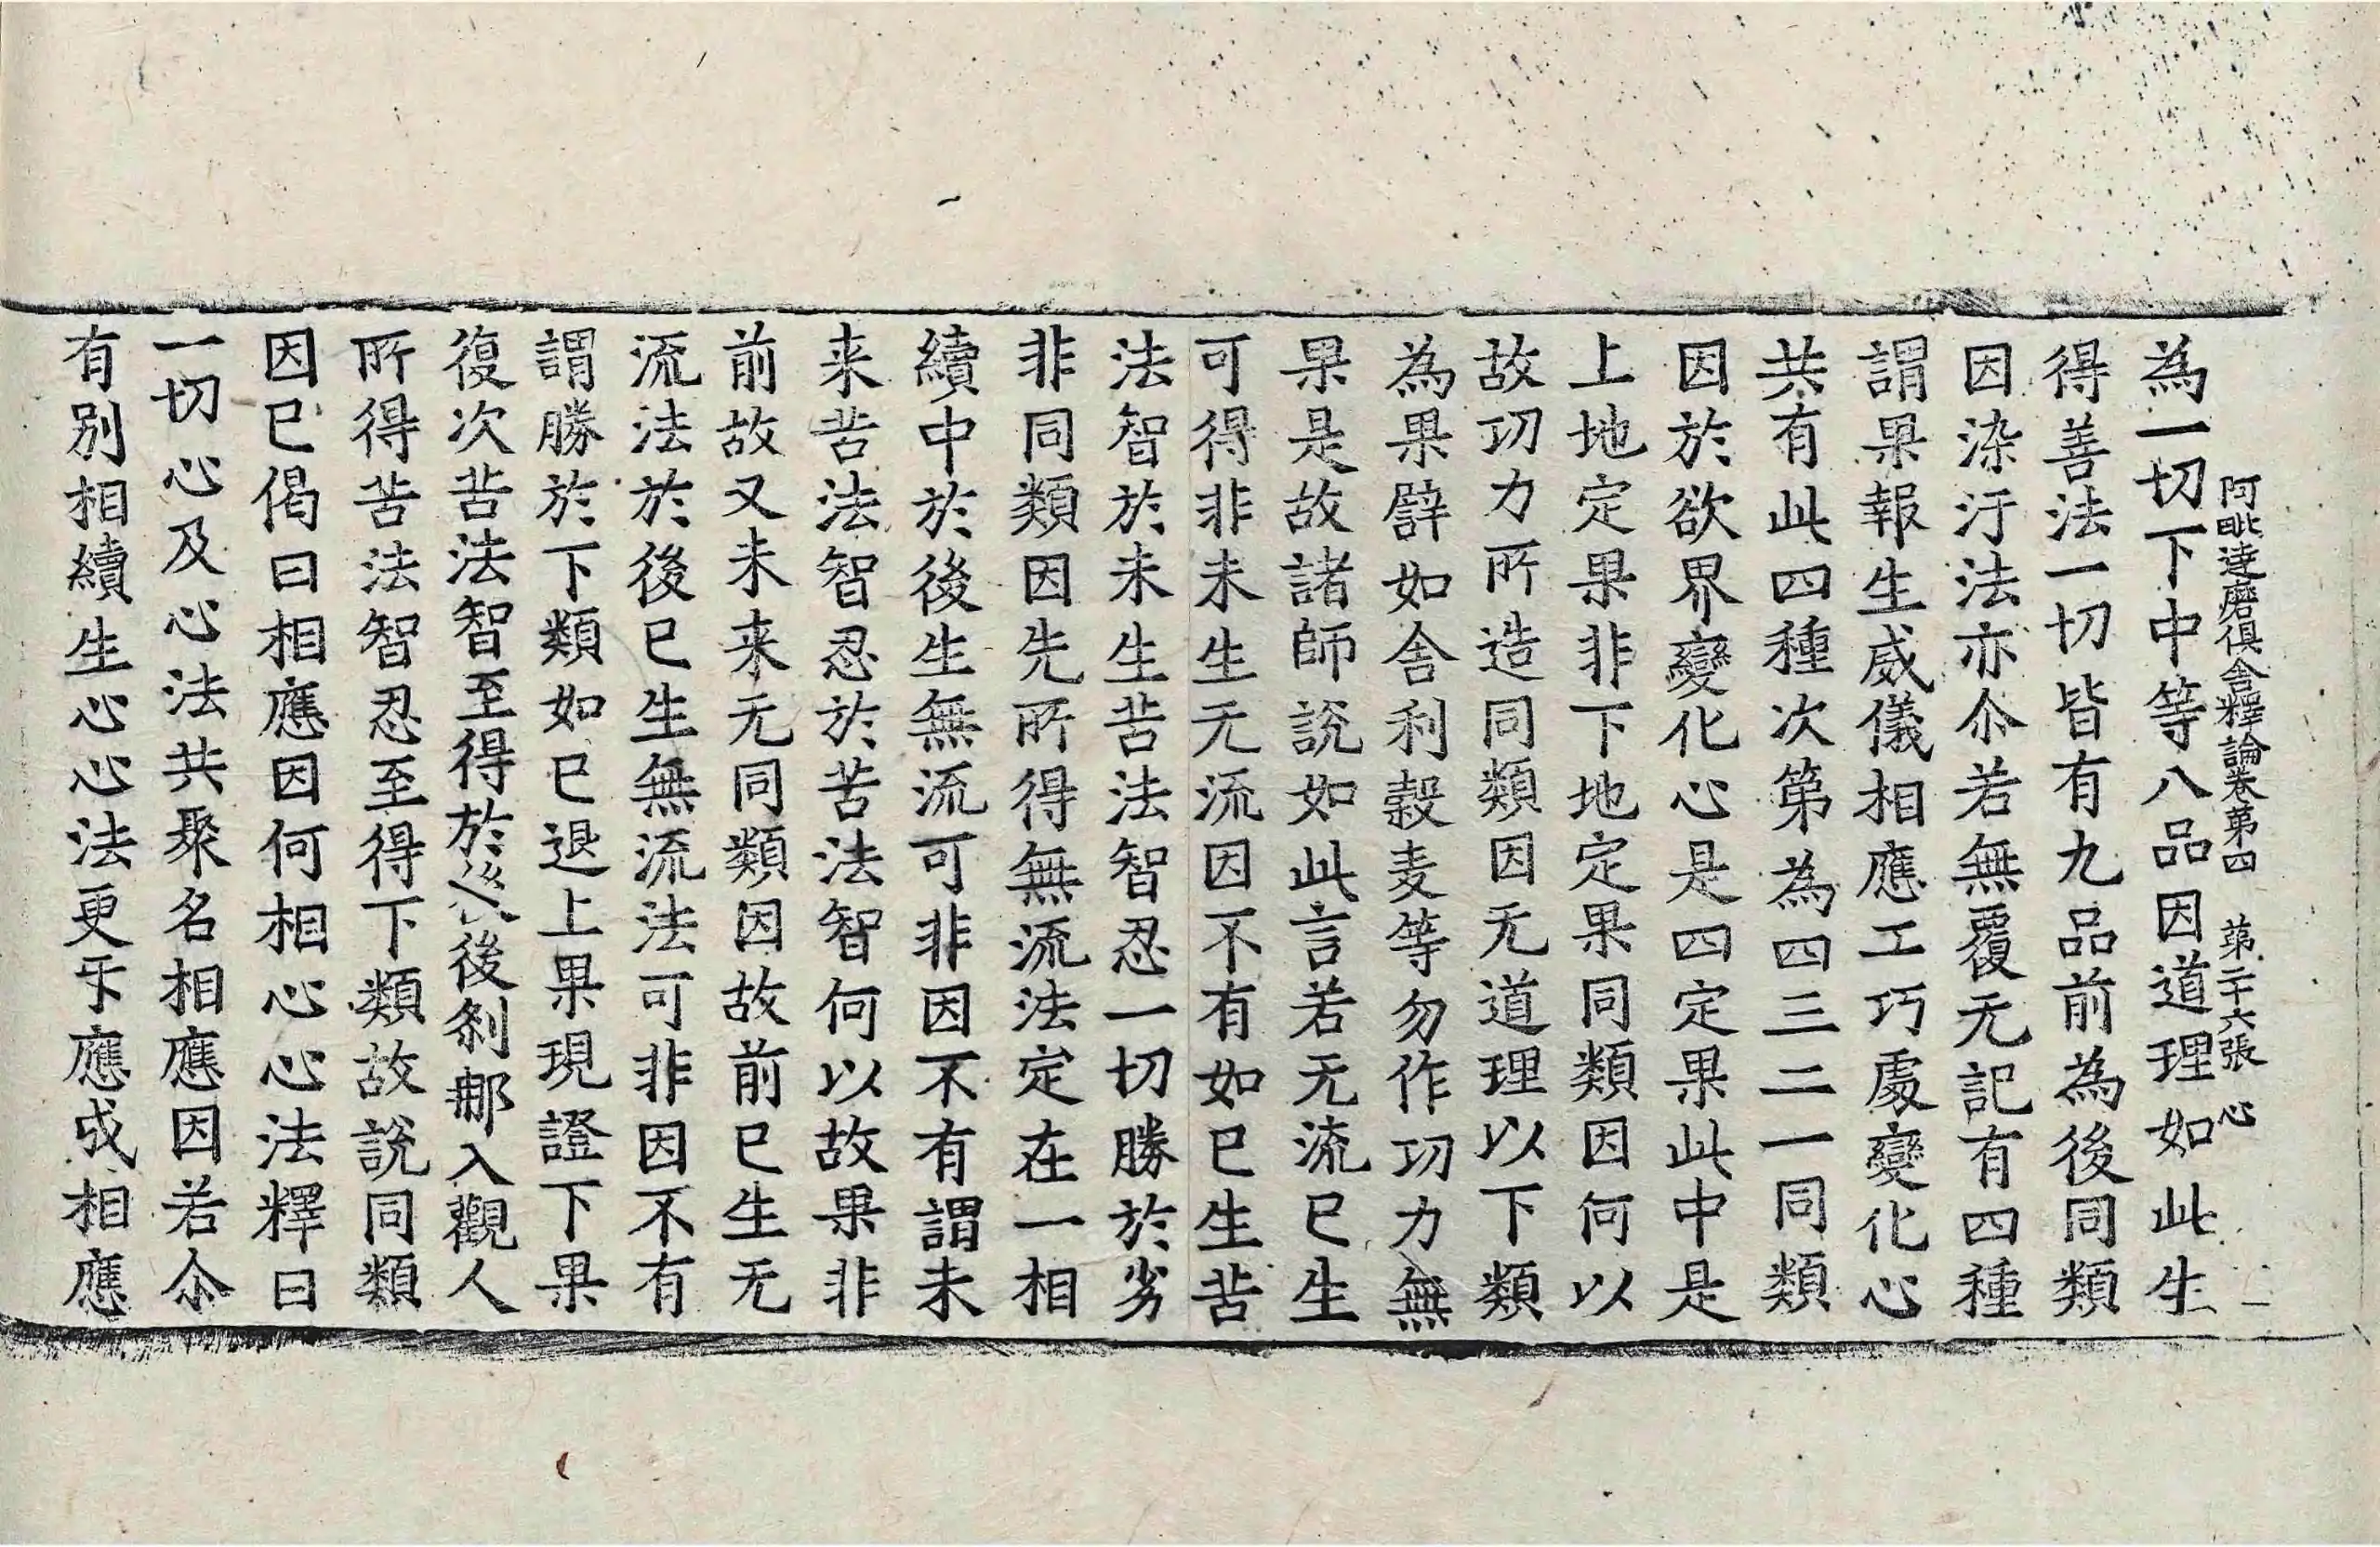 阿毗達磨俱舍釋論卷第四 第二十六張 心
為一切下中等八品因道理如此生
得善法一切皆有九品前為後同類
因染汙法亦尒若無覆无記有四種
謂果報生威儀相應工巧處變化心
共有此四種次第為四三二一同類
因於欲界變化心是四定果此中是
上地定果非下地定果同類因何以
故功力所造同類因无道理以下類
為果譬如舍利穀麦等勿作功力無
果是故諸師說如此言若无流已生
可得非未生无流因不有如已生苦
法智於未生苦法智忍一切勝於劣
非同類因先所得無流法定在一相
續中於後生無流可非因不有謂未
来苦法智忍於苦法智何以故果非
前故又未来无同類因故前已生无
流法於後已生無流法可非因不有
謂勝於下類如已退上果現證下果
復次苦法智至得於後後剎那入觀人
所得苦法智忍至得下類故說同類
因已偈曰相應因何相心心法釋曰
一切心及心法共聚名相應因若尒
有別相續生心心法更㸦應成相應